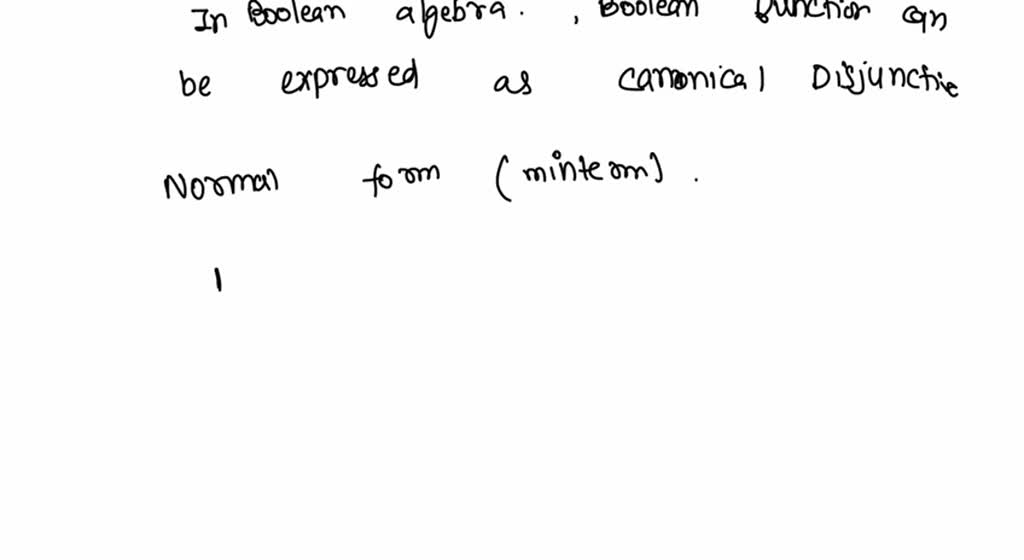 In Boolean algebra. , Boolean function can
be expressed as canonical Disjunctie
Normal form (minterm).
I